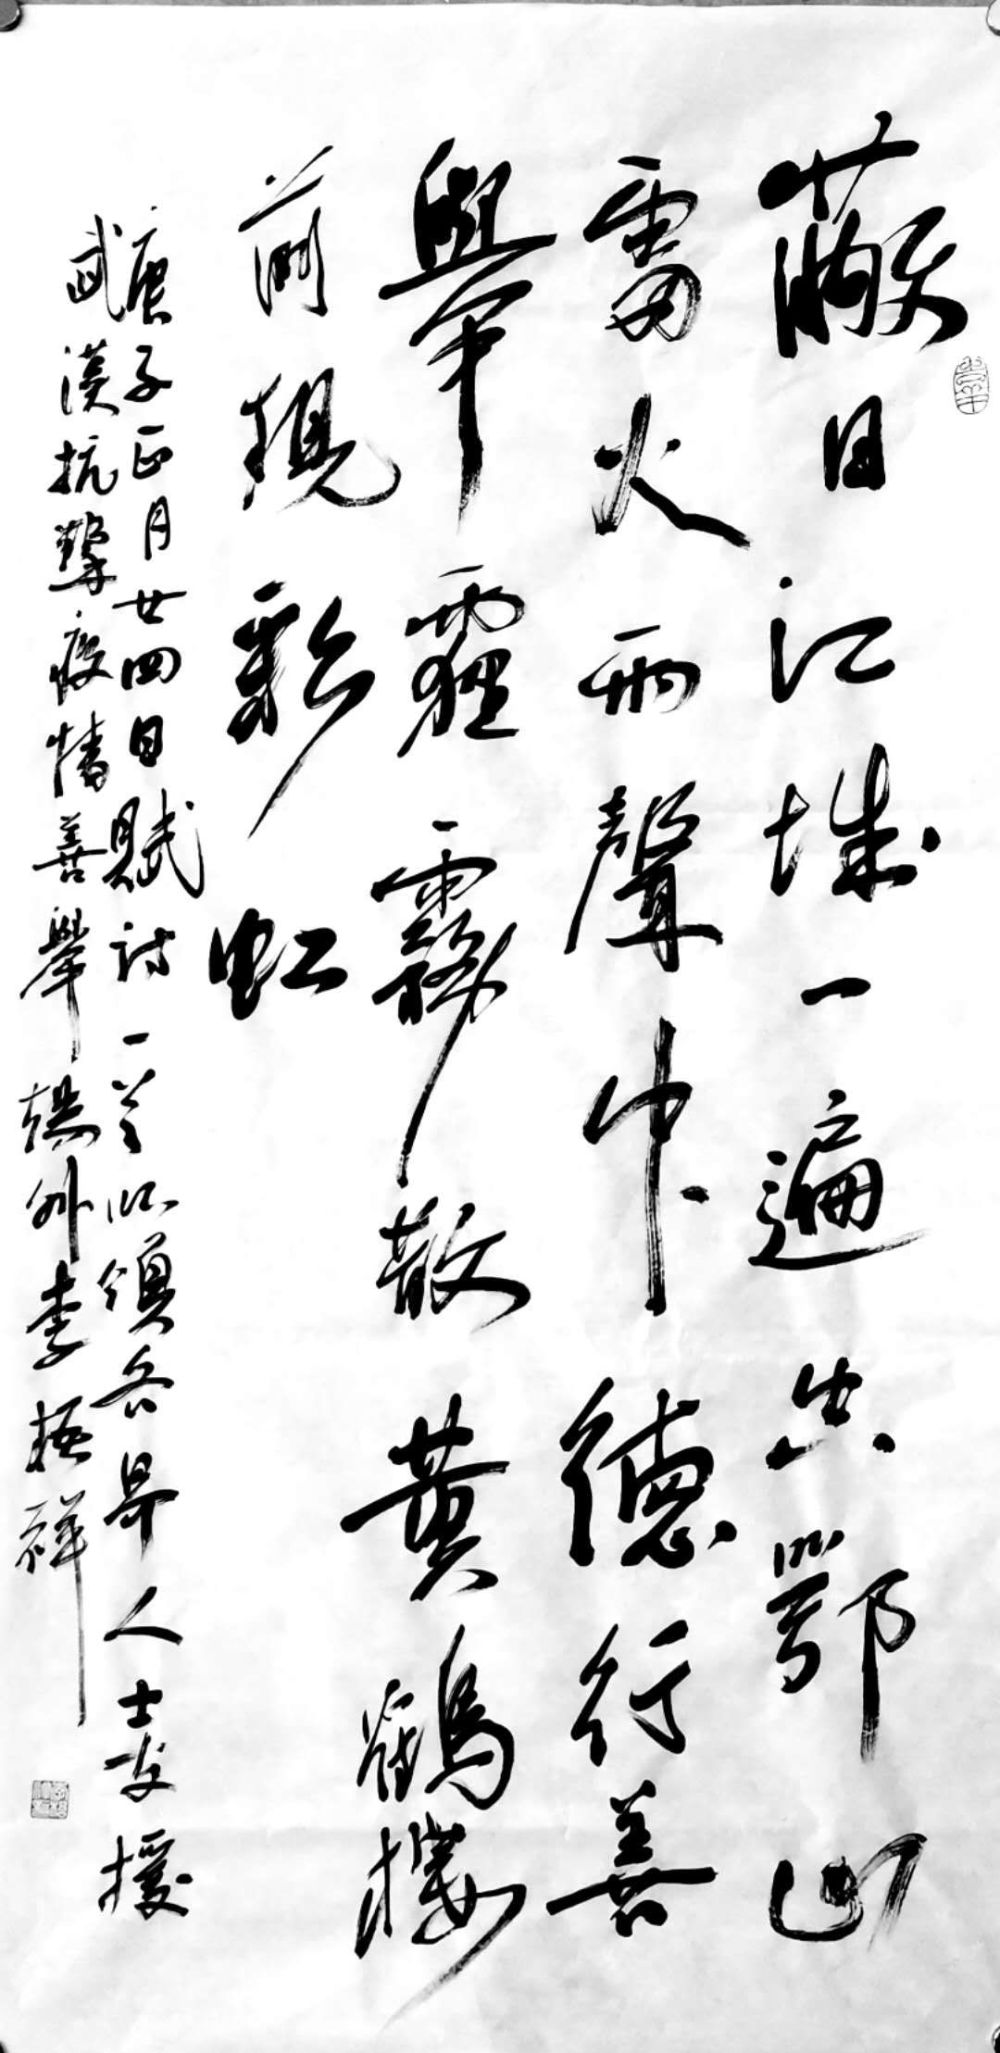 蔽日江城一遍空鄂山
雷火雨聲中德行善
舉霾霧散黃鶴樓
前現彩虹
庚子正月廿四日賦詩一首以頌各界人士支援
武漢抗擊疫情善舉楊外李振祥